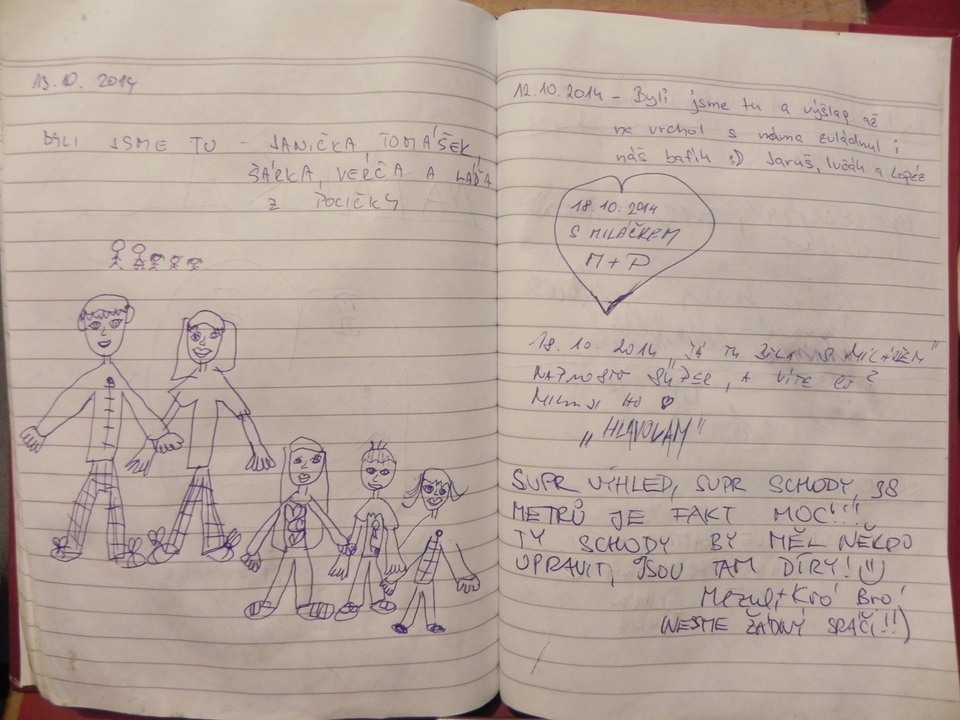 13.10. 2014
BYLI JSME TU - JANIČKA, TOMÁŠEK,
ŠÁRKA, VERČA A LÁĎA
Z POCIČKY
12.10.2014 - Byli jsme tu a výšlap až
na vrchol s náma zvládnul i
náš bafík :) Jaruš, Lucák a Lopéz
18.10.2014
S MILÁČKEM
M + P
18. 10 2014 „JÁ TU BYLA S MILÁČKEM"
, A VÍTE CO?
MILUJI HO
„HLAVOLAM"
SUPR VÝHLED, SUPR SCHODY, 38
METRŮ JE FAKT MOC!!!
TY SCHODY BY MĚL NĚKDO
UPRAVIT, JSOU TAM DÍRY!
Bro'
(NEJSME ŽÁDNÝ SRÁČI!!)